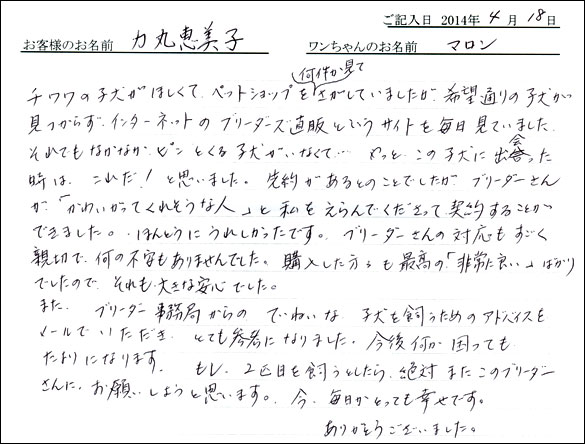 ご記入日 2014年 4月 18日
お客様のお名前 力丸恵美子 ワンちゃんのお名前 マロン
何件か見て
チワワの子犬がほしくて、ペットショップをさがしていましたが、希望通りの子犬が
見つからず、インターネットのブリーダーズ直販というサイトを毎日見ていました。
それでもなかなかピンとくる子犬がいなくて… やっと この子犬に出会った
時は、これだ!と思いました。先約があるとのことでしたが、ブリーダーさん
が、「かわいがってくれそうな人」と私をえらんでくださって契約することが
できました。ほんとうにうれしかったです。ブリーダーさんの対応もすごく
親切で、何の不安もありませんでした。購入した方々も最高の「非常に良い」ばかり
でしたので、それも大きな安心でした。
また、ブリーダー事務局からの ていねいな 子犬を飼うためのアドバイスを
メールでいただき、とても参考になりました。今後何か困っても
たよりになります。もし、2匹目を飼うとしたら、絶対またこのブリーダー
さんに、お願いしようと思います。今、毎日がとっても幸せです。
ありがとうございました。